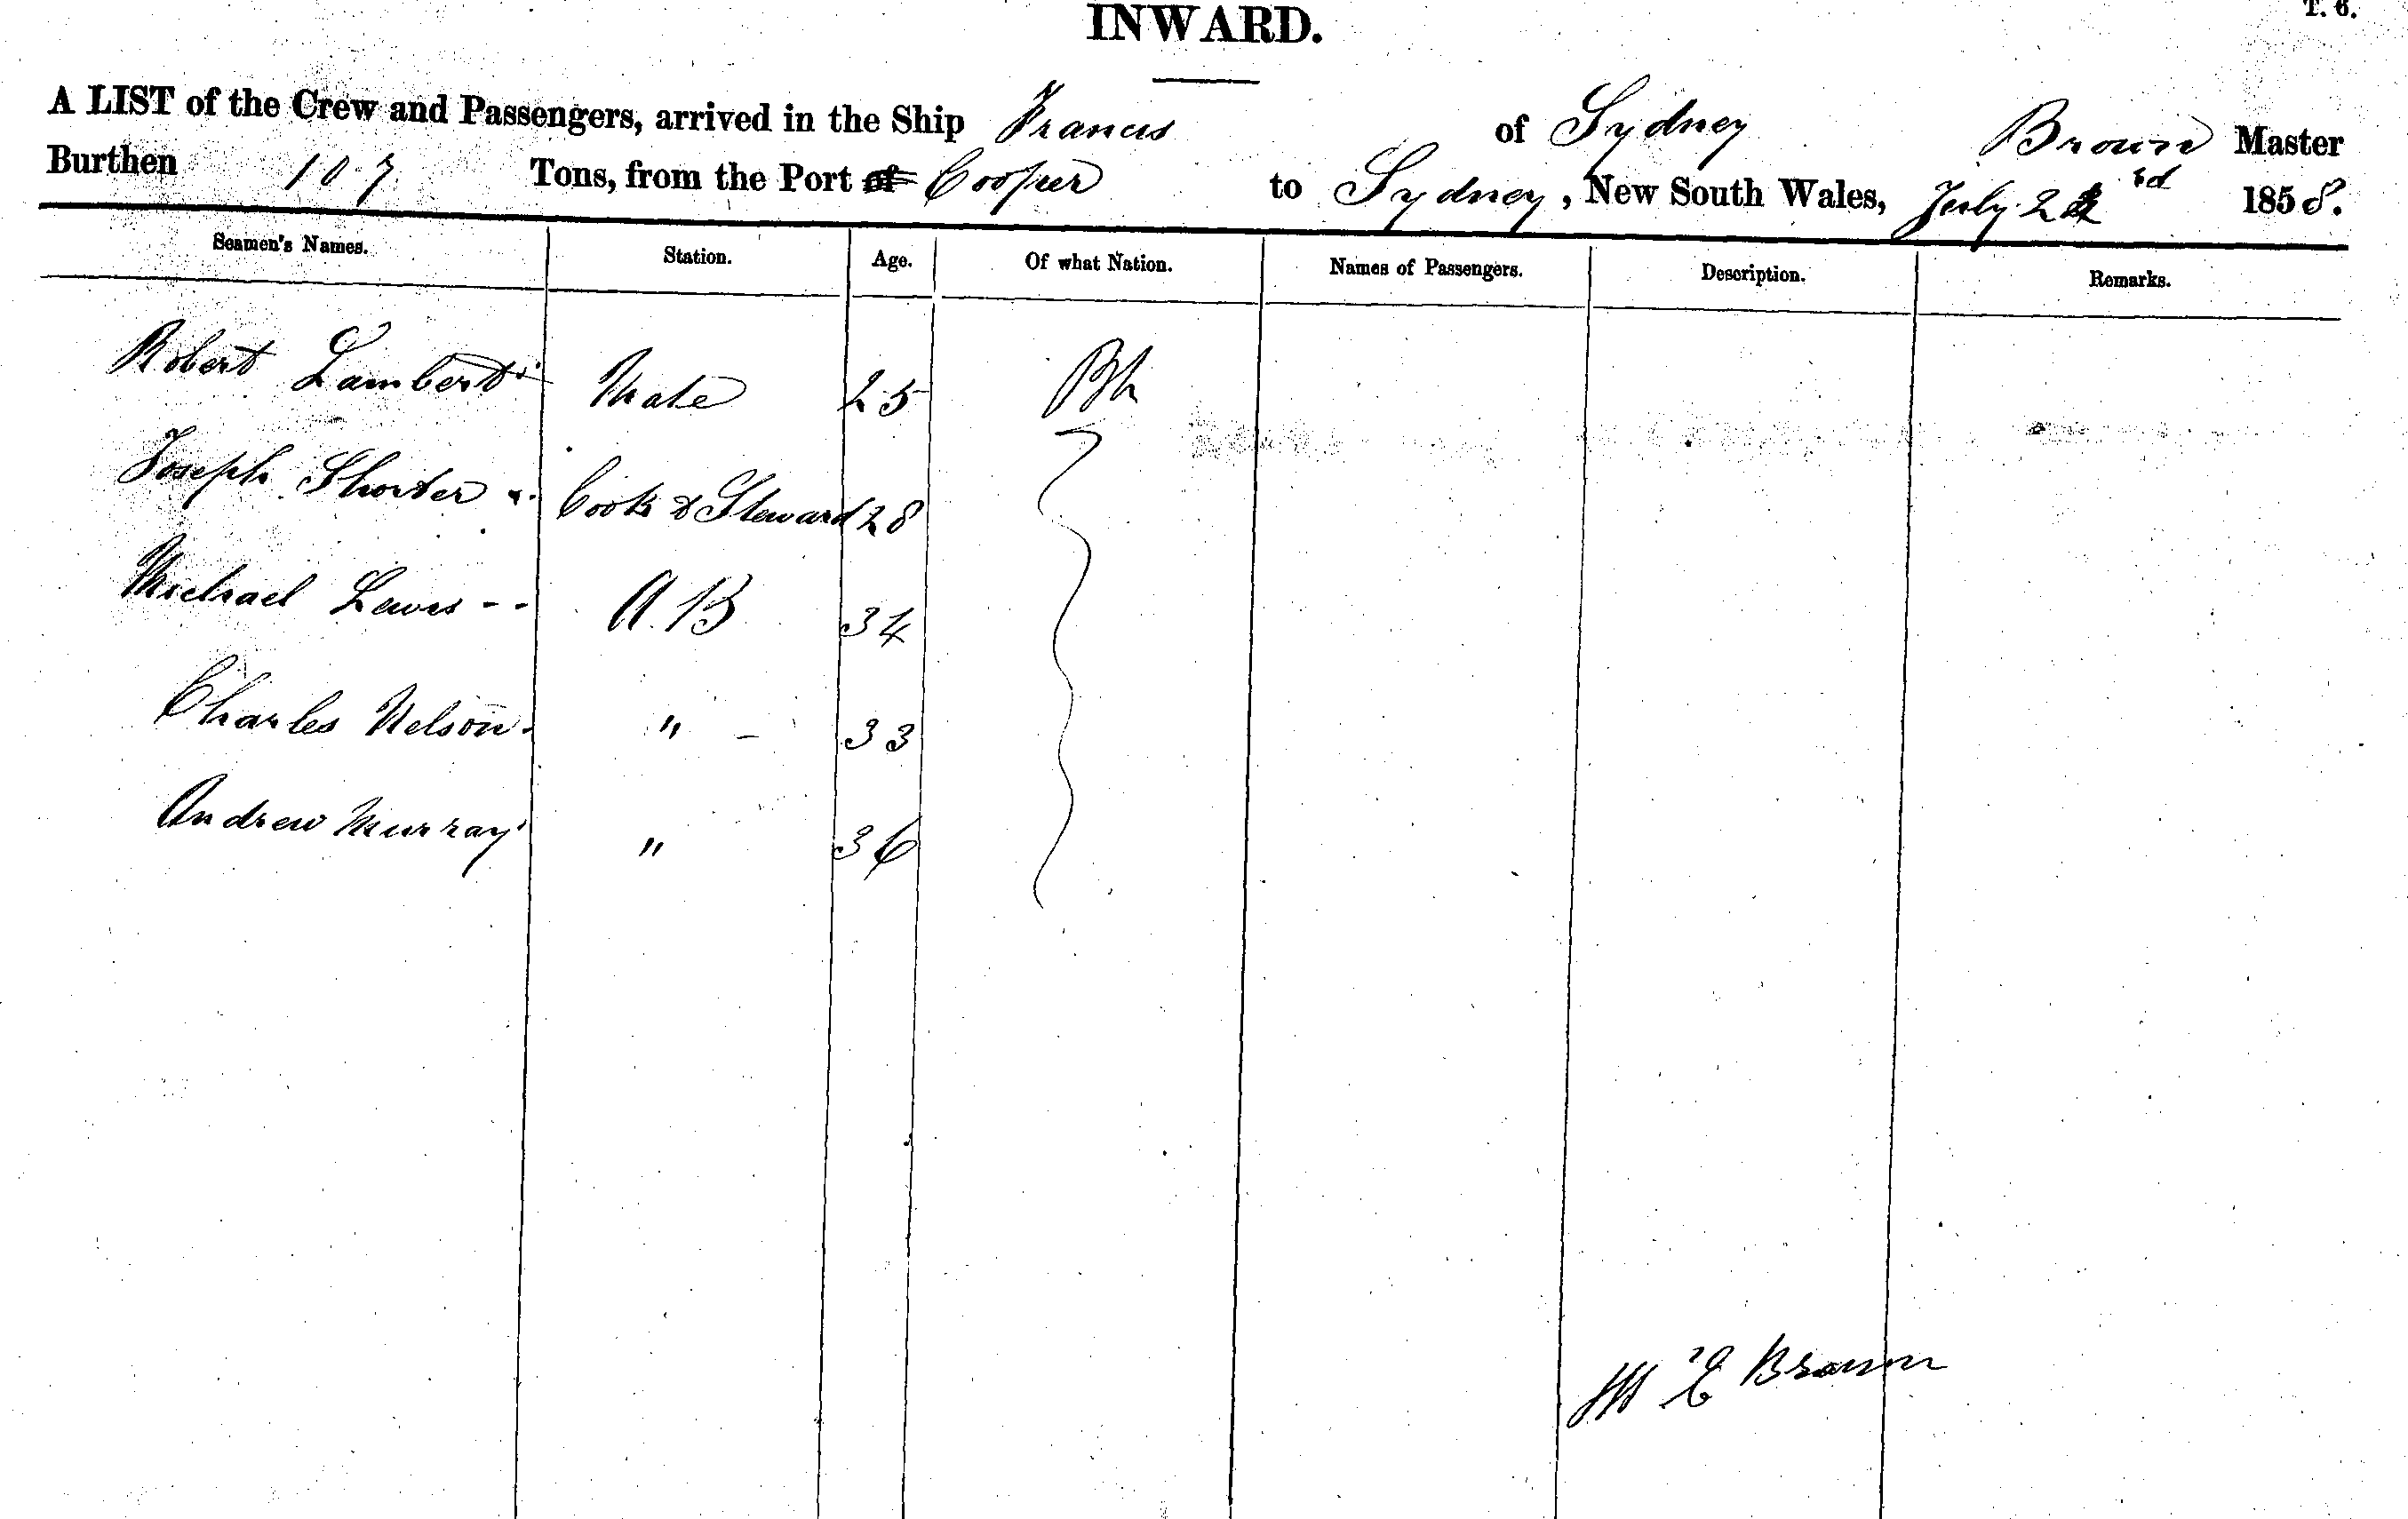 T. 6.
INWARD.
A LIST of the Crew and Passengers, arrived in the Ship Francis of Sydney Brown Master
Burthen 107 Tons, from the Port of Cooper to Sydney, New South Wales, July 1858.
Seamen's Names. Station. Age. Of what Nation. Names of Passengers. Description. Remarks.
Robert Lambert Mate 25 Bh
Joseph Shorter Cook & Steward 28
Michael Lewis - - A.B 34
Charles Nelson - " - 33
Andrew Murray " 36
E Brown